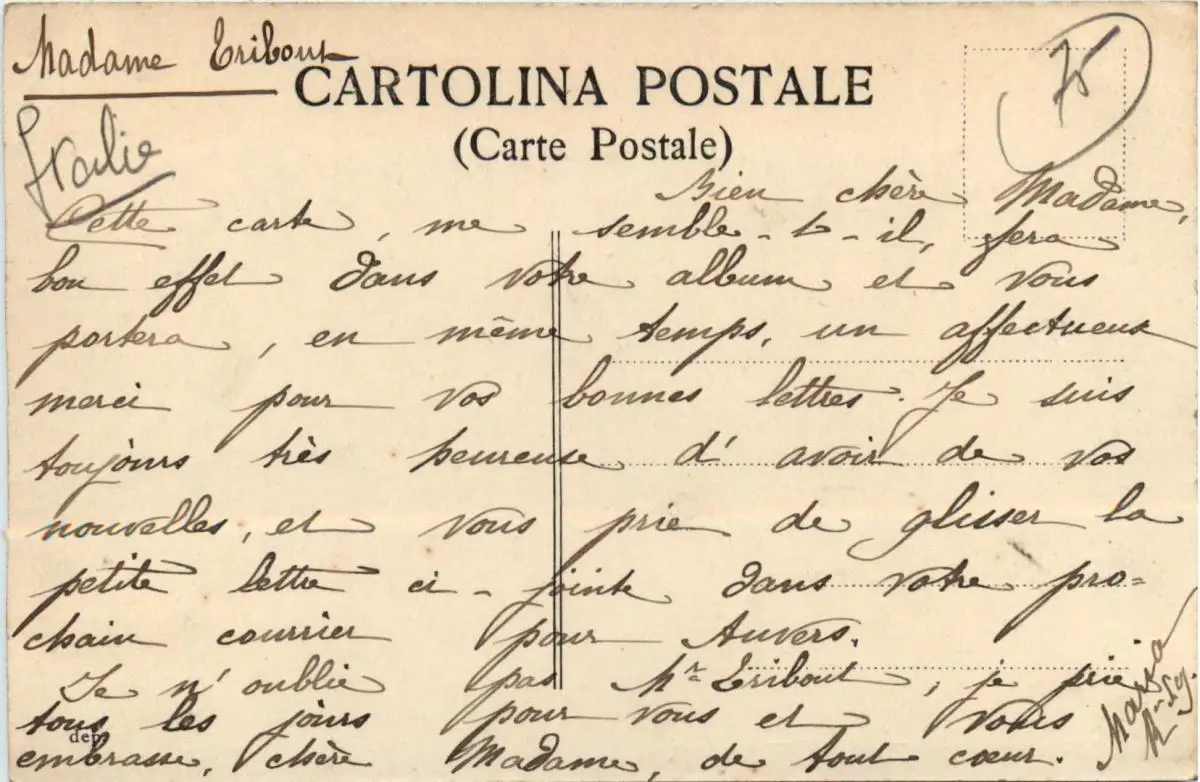 Madame Eribout
CARTOLINA POSTALE
(Carte Postale)
75
Italie
Bien chère Madame,
Cette carte, me semble-t-il, fera
bon effet dans votre album et vous
portera, en même temps, un affectueux
merci pour vos bonnes lettres. Je suis
toujours très heureuse d'avoir de vos
nouvelles, et vous prie de glisser la
petite lettre ci-jointe dans votre pro=
chain courrier pour Anvers.
Je n'oublie pas Mr Eribout, je prie
tous les jours pour vous et vous
dep
embrasse, chère Madame, de tout cœur.
Maria